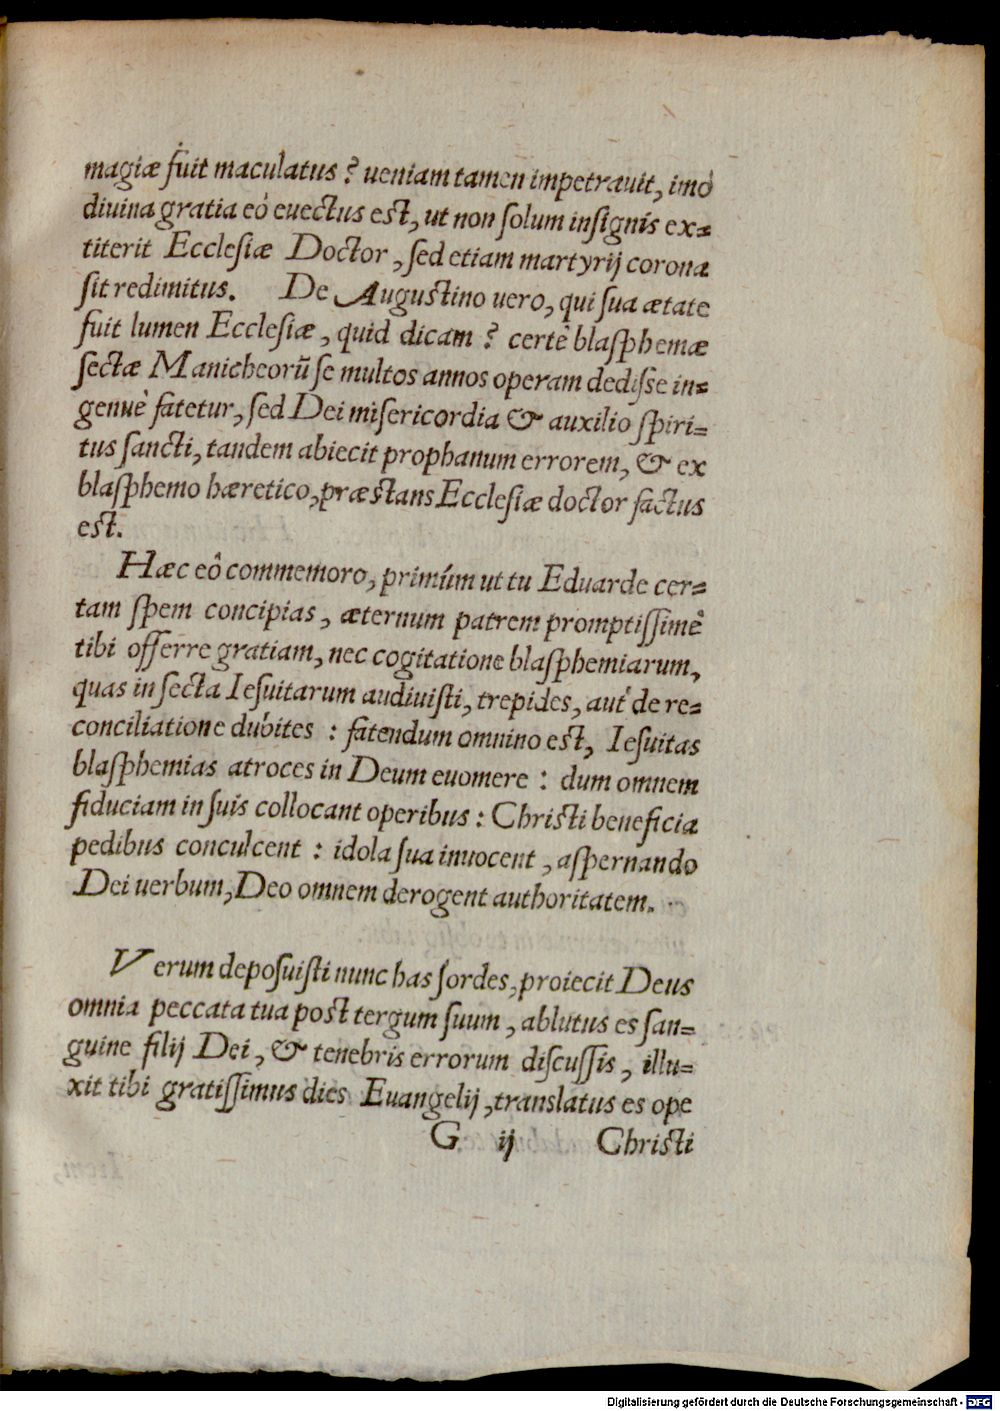 magiæ fuit maculatus? ueniam tamen impetrauit, imò
diuina gratia eò euectus est, ut non ſolum inſignis ex=
titerit Eccleſiæ Doctor, ſed etiam martyrij corona
ſit redimitus. De Auguſtino uero, qui ſua ætate
fuit lumen Eccleſiæ, quid dicam? certè blaſphemæ
ſectæ Manicheorũ ſe multos annos operam dediſſe in=
genuè fatetur, ſed Dei miſericordia & auxilio ſpiri=
tus ſancti, tandem abiecit prophanum errorem, & ex
blaſphemo hæretico, præſtans Eccleſiæ doctor factus
eſt.
Hæc eô commemoro, primúm ut tu Eduarde cer=
tam ſpem concipias, æternum patrem promptiſſimè
tibi offerre gratiam, nec cogitatione blaſphemiarum,
quas in ſecta Ieſuitarum audiuiſti, trepides, aut de re=
conciliatione dubites : fatendum omnino eſt, Ieſuitas
blaſphemias atroces in Deum euomere : dum omnem
fiduciam in ſuis collocant operibus : Chriſti beneficia
pedibus conculcent : idola ſua inuocent, aſpernando
Dei uerbum, Deo omnem derogent authoritatem.
Verum depoſuiſti nunc has ſordes, proiecit Deus
omnia peccata tua poſt tergum ſuum, ablutus es ſan=
guine filij Dei, & tenebris errorum diſcuſſis, illu=
xit tibi gratiſſimus dies Euangelij, translatus es ope
G ij Chriſti
Digitalisierung gefördert durch die Deutsche Forschungsgemeinschaft - DFG